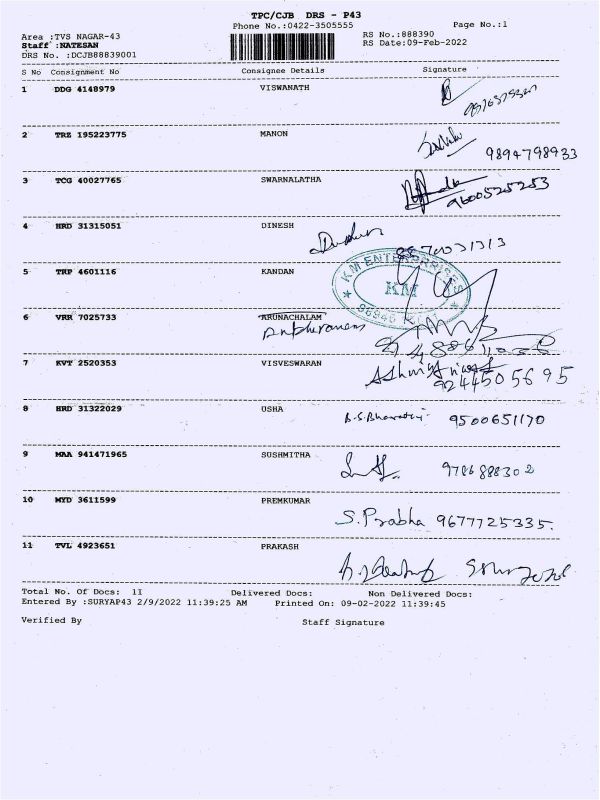 TPC/CJB DRS - P43
Phone No.:0422-3505555 Page No.:1
Area :TVS NAGAR-43 RS No.:888390
Staff :NATESAN RS Date:09-Feb-2022
DRS No. :DCJB88839001
S No Consignment No Consignee Details Signature
1 DDG 4148979 VISWANATH
2 TRZ 195223775 MANON
9894798933
3 TCG 40027765 SWARNALATHA
9600525253
4 HRD 31315051 DINESH
KM ENTERPRISES
5 TRP 4601116 KANDAN KM
6 VRR 7025733 ARUNACHALAM
7 KVT 2520353 VISVESWARAN
9244505695
8 HRD 31322029 USHA
9500651170
9 MAA 941471965 SUSHMITHA
10 MYD 3611599 PREMKUMAR
S.Prabha 9677725335.
11 TVL 4923651 PRAKASH
Total No. Of Docs: 11 Delivered Docs: Non Delivered Docs:
Entered By :SURYAP43 2/9/2022 11:39:25 AM Printed On: 09-02-2022 11:39:45
Verified By Staff Signature